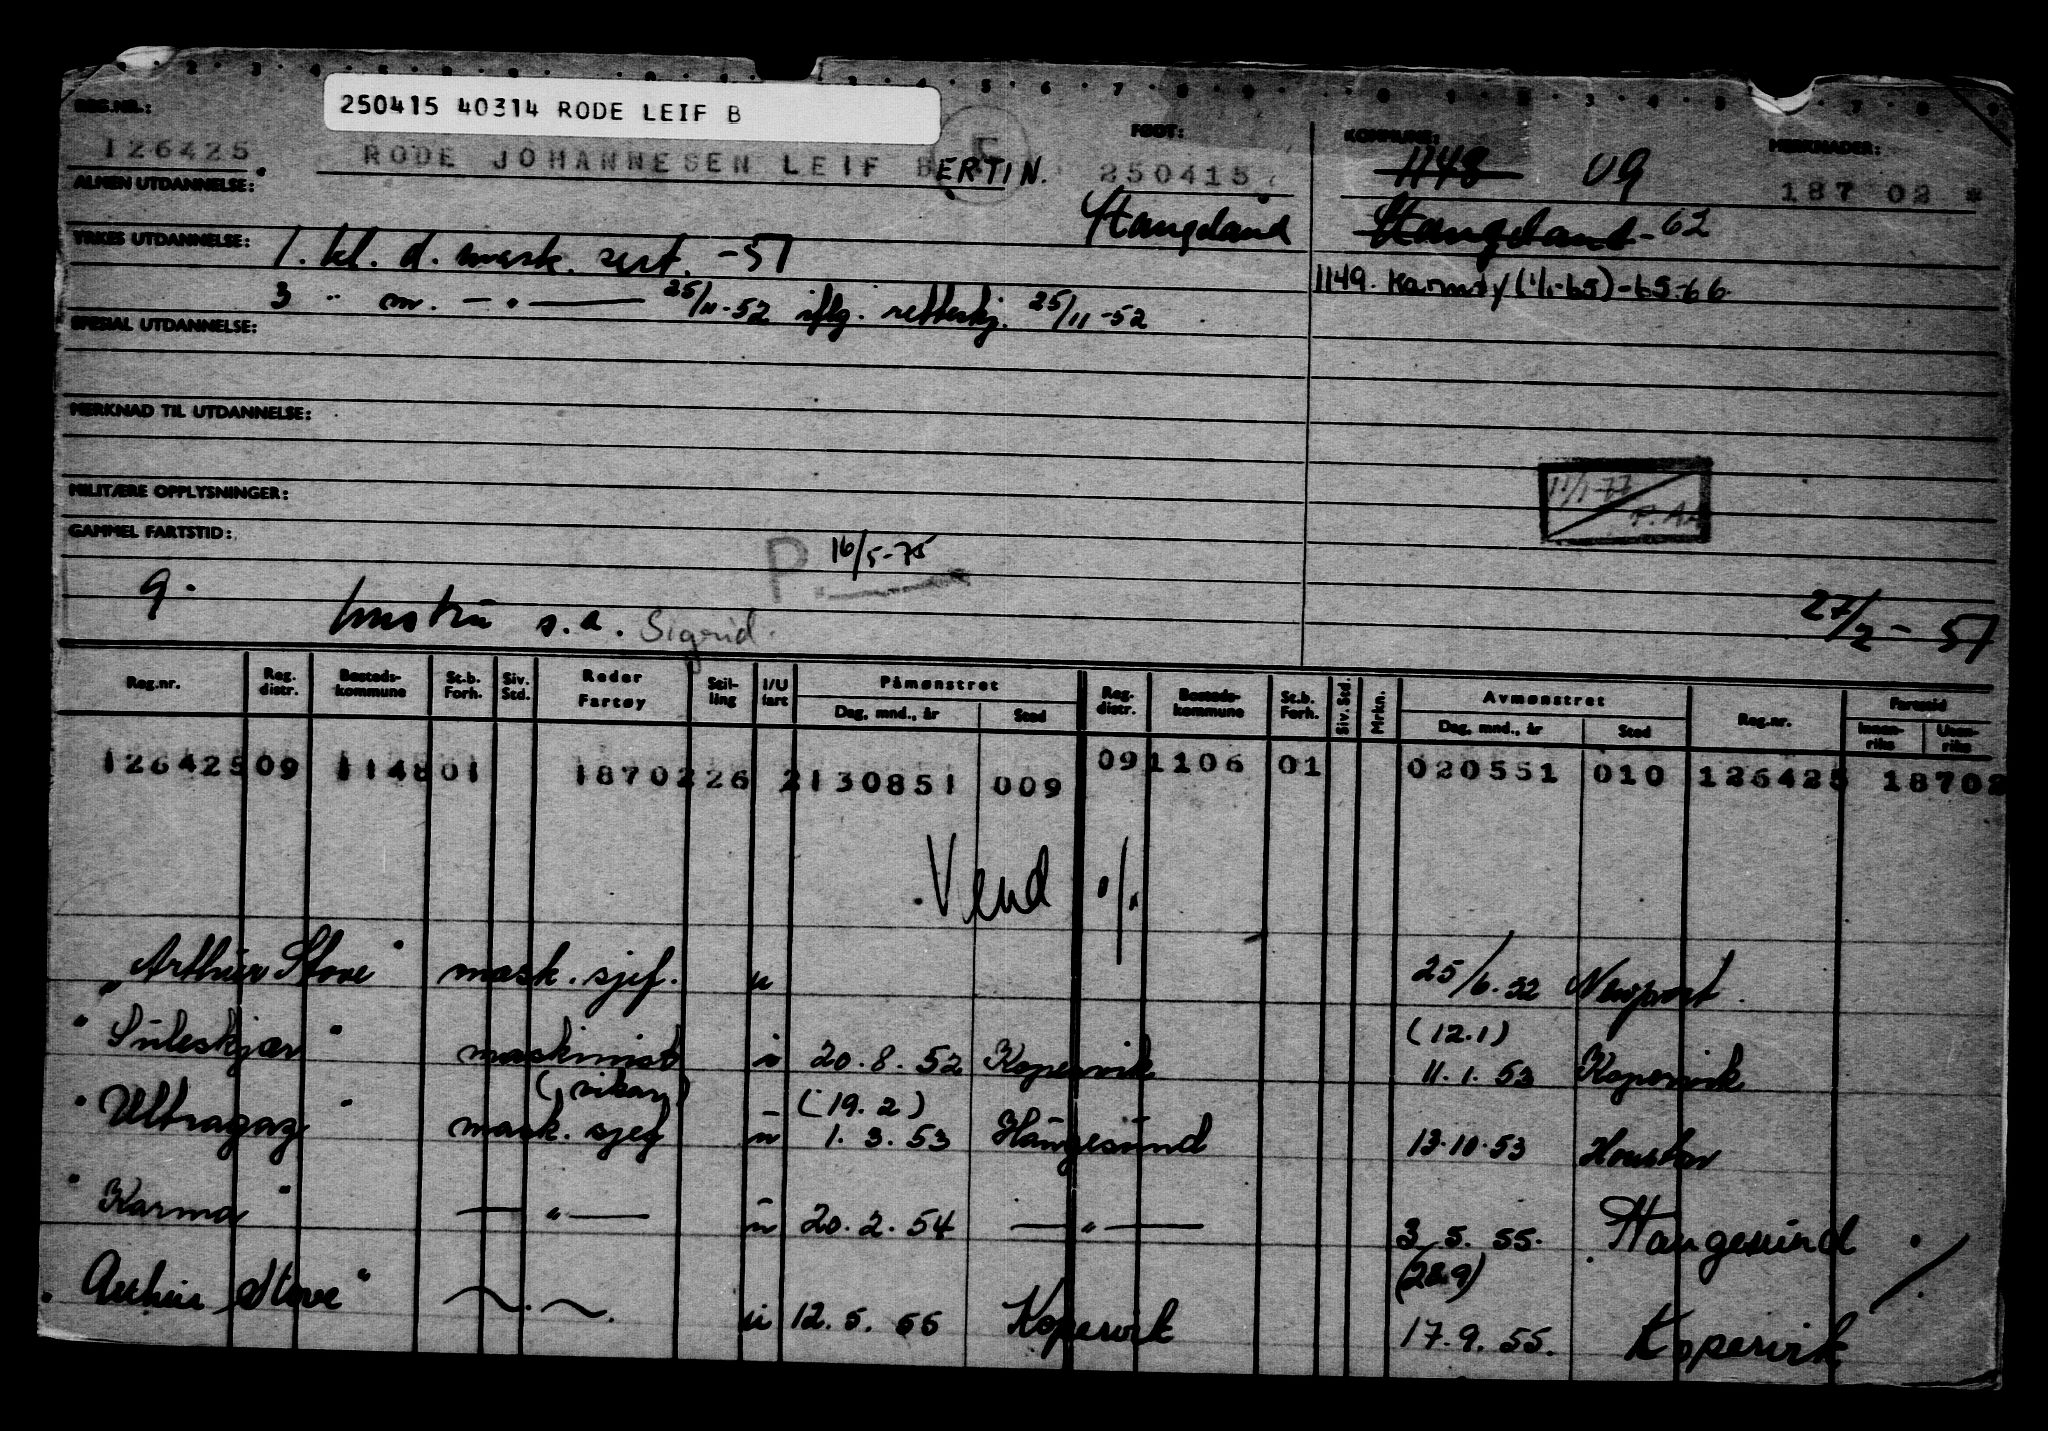 250415 40314 RODE LEIF B
REG.NR.: FØDT: KOMMUNE: MERKNADER:
126425. RODE JOHANNESEN LEIF BERTIN. 250415 1148 UG 187 02 *
ALMEN UTDANNELSE:
Stangeland Stangeland-62
YRKES UTDANNELSE: 1. kl. d. mask. sert. -51
1149. Karmøy (1/1-65)-65-66
3 " m. — " — 25/11-52 iflg. rettskj. 25/11-52
SPESIAL UTDANNELSE:
MERKNAD TIL UTDANNELSE:
MILITÆRE OPPLYSNINGER:
11/1-77
GAMMEL FARTSTID:
P. 16/5-75
g. hustru s.a. Sigrid. 27/2-57
Reg.nr. Reg. distr. Bosteds-kommune St.b. Forh. Siv. Std. Reder Fartøy Stil-ling I/U fart Påmønstret Dag, mnd., år Sted Reg. distr. Bosteds-kommune St.b. Forh. Siv. Std. Mrkn. Avmønstret Dag, mnd., år Sted Reg.nr. Fartstid Innen-riks Uten-riks
126425 09 1148 01 1870226 2 130851 009 09 1106 01 020551 010 126425 18702
Vend
"Arthur Stove" mask. sjef. u 25/6.52 Newport.
(12.1)
"Suleskjær" maskinist i 20.8.52 Kopervik 11.1.53 Kopervik
(vikar) (19.2)
"Ultragaz" mask. sjef u 1.3.53 Haugesund 13.10.53 Houston
"Karma" — " — u 20.2.54 — " — 3.5.55. Haugesund
(28.9)
"Arthur Stove" — . — u 12.5.55 Kopervik 17.9.55. Kopervik